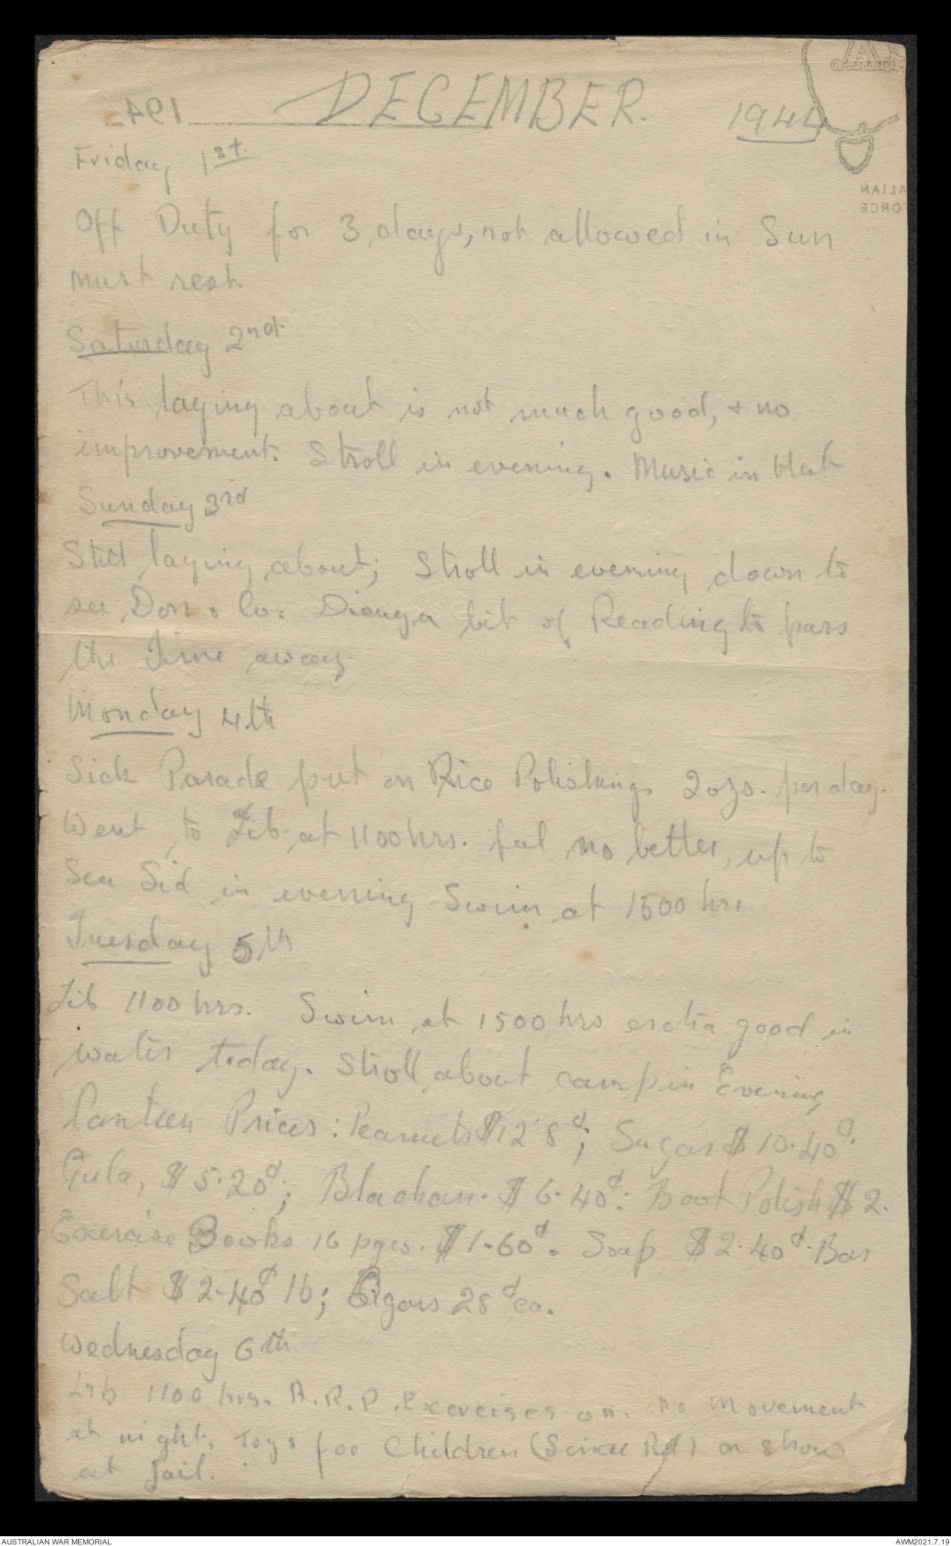 DECEMBER. 1944
Friday 1st.
Off Duty for 3 days, not allowed in Sun
must rest
Saturday 2nd
This laying about is not much good, & no
improvement. Stroll in evening. Music in hut
Sunday 3rd
Still laying about; Stroll in evening down to
see Don & Co. Doing a bit of Reading to pass
the Time away.
Monday 4th
Sick Parade put on Rice Polishings 2ozs. per day.
Went to Lib at 1100 hrs. feel no better, up to
See Sid in evening Swim at 1500 hrs
Tuesday 5th
Lib 1100 hrs. Swim at 1500 hrs extra good in
water today. Stroll about camp in Evening
Canteen Prices: Peanuts $12 8¢; Sugar $10.40¢.
Gula, $5.20¢; Blachan. $6.40¢: Boot Polish $2.
Exercise Books 16 pges. $1.60¢. Soap $2.40¢. Bar
Salt $2.40¢ lb; Cigars 28¢ ea.
Wednesday 6th
Lib 1100 hrs. A.R.P. Exercises on. no movement
at night. Toys for Children (Since Rd) on show
at Jail.
194
ALIAN
FORCE
AUSTRALIAN WAR MEMORIAL
AWM2021.7.19